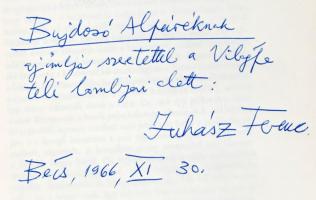 Bujdosó Alpáréknak
ajánlja szeretettel a Világfa
téli lombjai alatt:
Juhász Ferenc.
Bécs, 1966, XI 30.